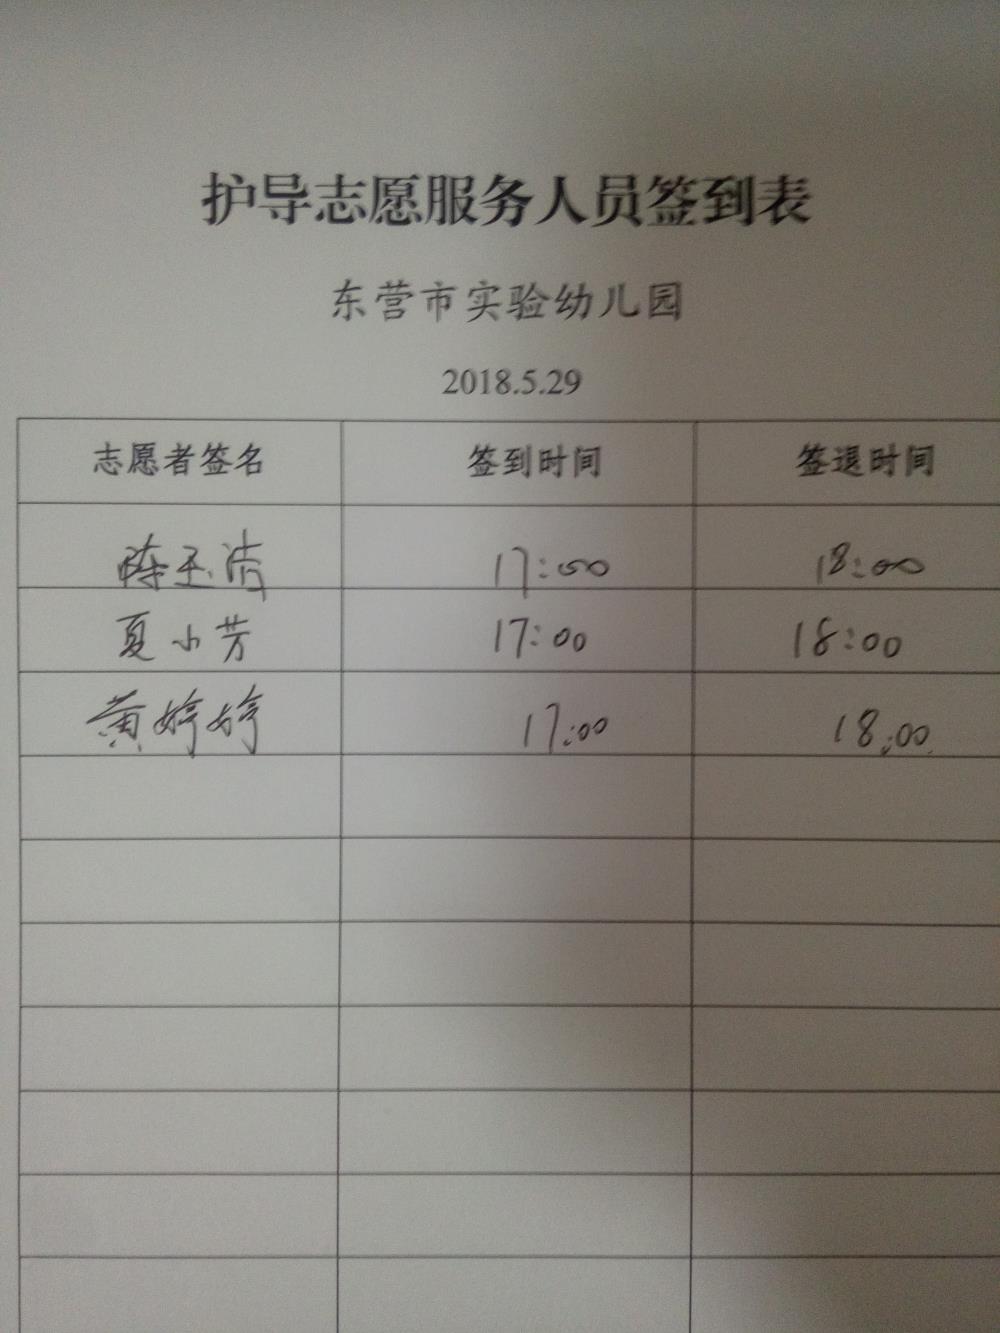 护导志愿服务人员签到表
东营市实验幼儿园
2018.5.29
志愿者签名 签到时间 签退时间
陈玉洁 17:00 18:00
夏小芳 17:00 18:00
黄婷婷 17:00 18:00